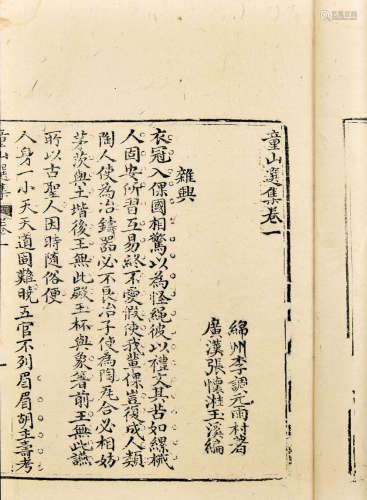 童山選集卷一
綿州李調元雨村著
廣漢張懷溎玉溪編
雜興
衣冠入倮國相驚以為怪繩彼以禮文其苦如縲械
人固安所習互易終不愛假使我輩倮豈復成人類
陶人使為冶鑄器必不良冶子使為陶瓦合必相妨
茅茨與土堦後王無此殿玉杯與象箸前王無此讌
所以古聖人因時隨俗便
人身一小天天道固難曉五官不列眉眉胡主壽考
童山選集 卷一